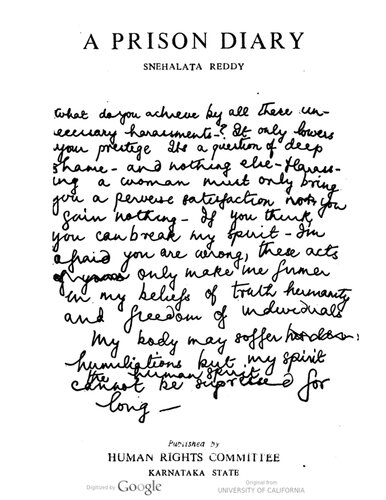 A PRISON DIARY
SNEHALATA REDDY
What do you achieve by all these un-
eccessary harassments-? It only lowers
your prestige Its a question of deep
shame - and nothing else - Harass-
ing a woman must only bring
you a perverse satisfaction you
gain nothing - If you think
you can break my spirit - I'm
afraid you are wrong, these acts
only make me firmer
in my beliefs of truth humanity
and freedom of individuals
My body may suffer
humiliations but my spirit
the human spirit
cannot be supressed for
long -
Published by
HUMAN RIGHTS COMMITTEE
KARNATAKA STATE
Digitized by Google
Original from
UNIVERSITY OF CALIFORNIA